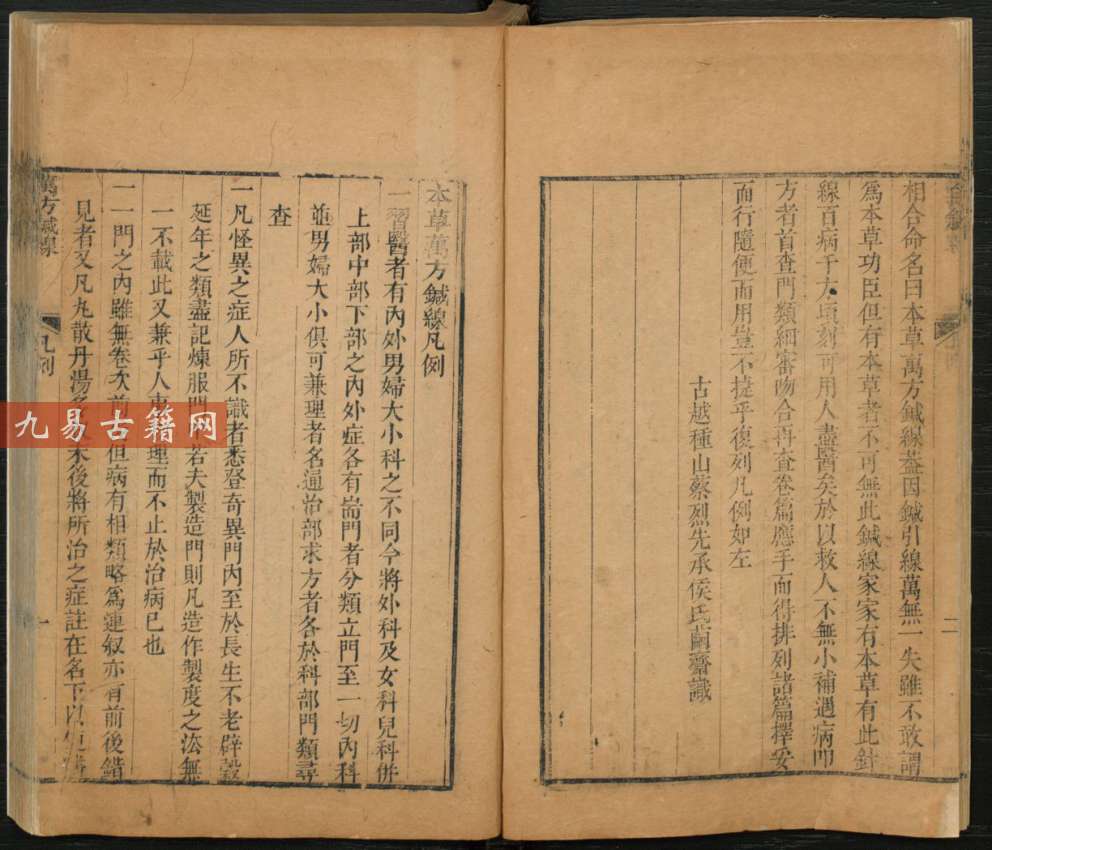 相合命名曰本草萬方鍼線葢因鍼引線萬無一失雖不敢謂
爲本草功臣但有本草者不可無此鍼線家家有本草有此針
線百病于大頃刻可用人盡醫矣於以救人不無小補遇病卽
方者首查門類細審吻合再查卷篇應手而得排列諸篇擇妥
而行隨便而用豈不捷乎復列凡例如左
古越種山蔡烈先承侯氏繭齋識
二
本草萬方鍼線凡例
一習醫者有內外男婦大小科之不同今將外科及女科兒科併
上部中部下部之內外症各有耑門者分類立門至一切內科
並男婦大小俱可兼理者名通治部求方者各於科部門類尋
查
一凡怪異之症人所不識者悉登奇異門內至於長生不老辟穀
延年之類盡記煉服門若夫製造門則凡造作製度之法無
一不載此又兼乎人事理而不止於治病已也
一一門之內雖無卷次前但病有相類略爲連叙亦有前後錯
見者又凡丸散丹湯名末後將所治之症註在名下以
萬方鍼線
凡例
一
九易古籍网